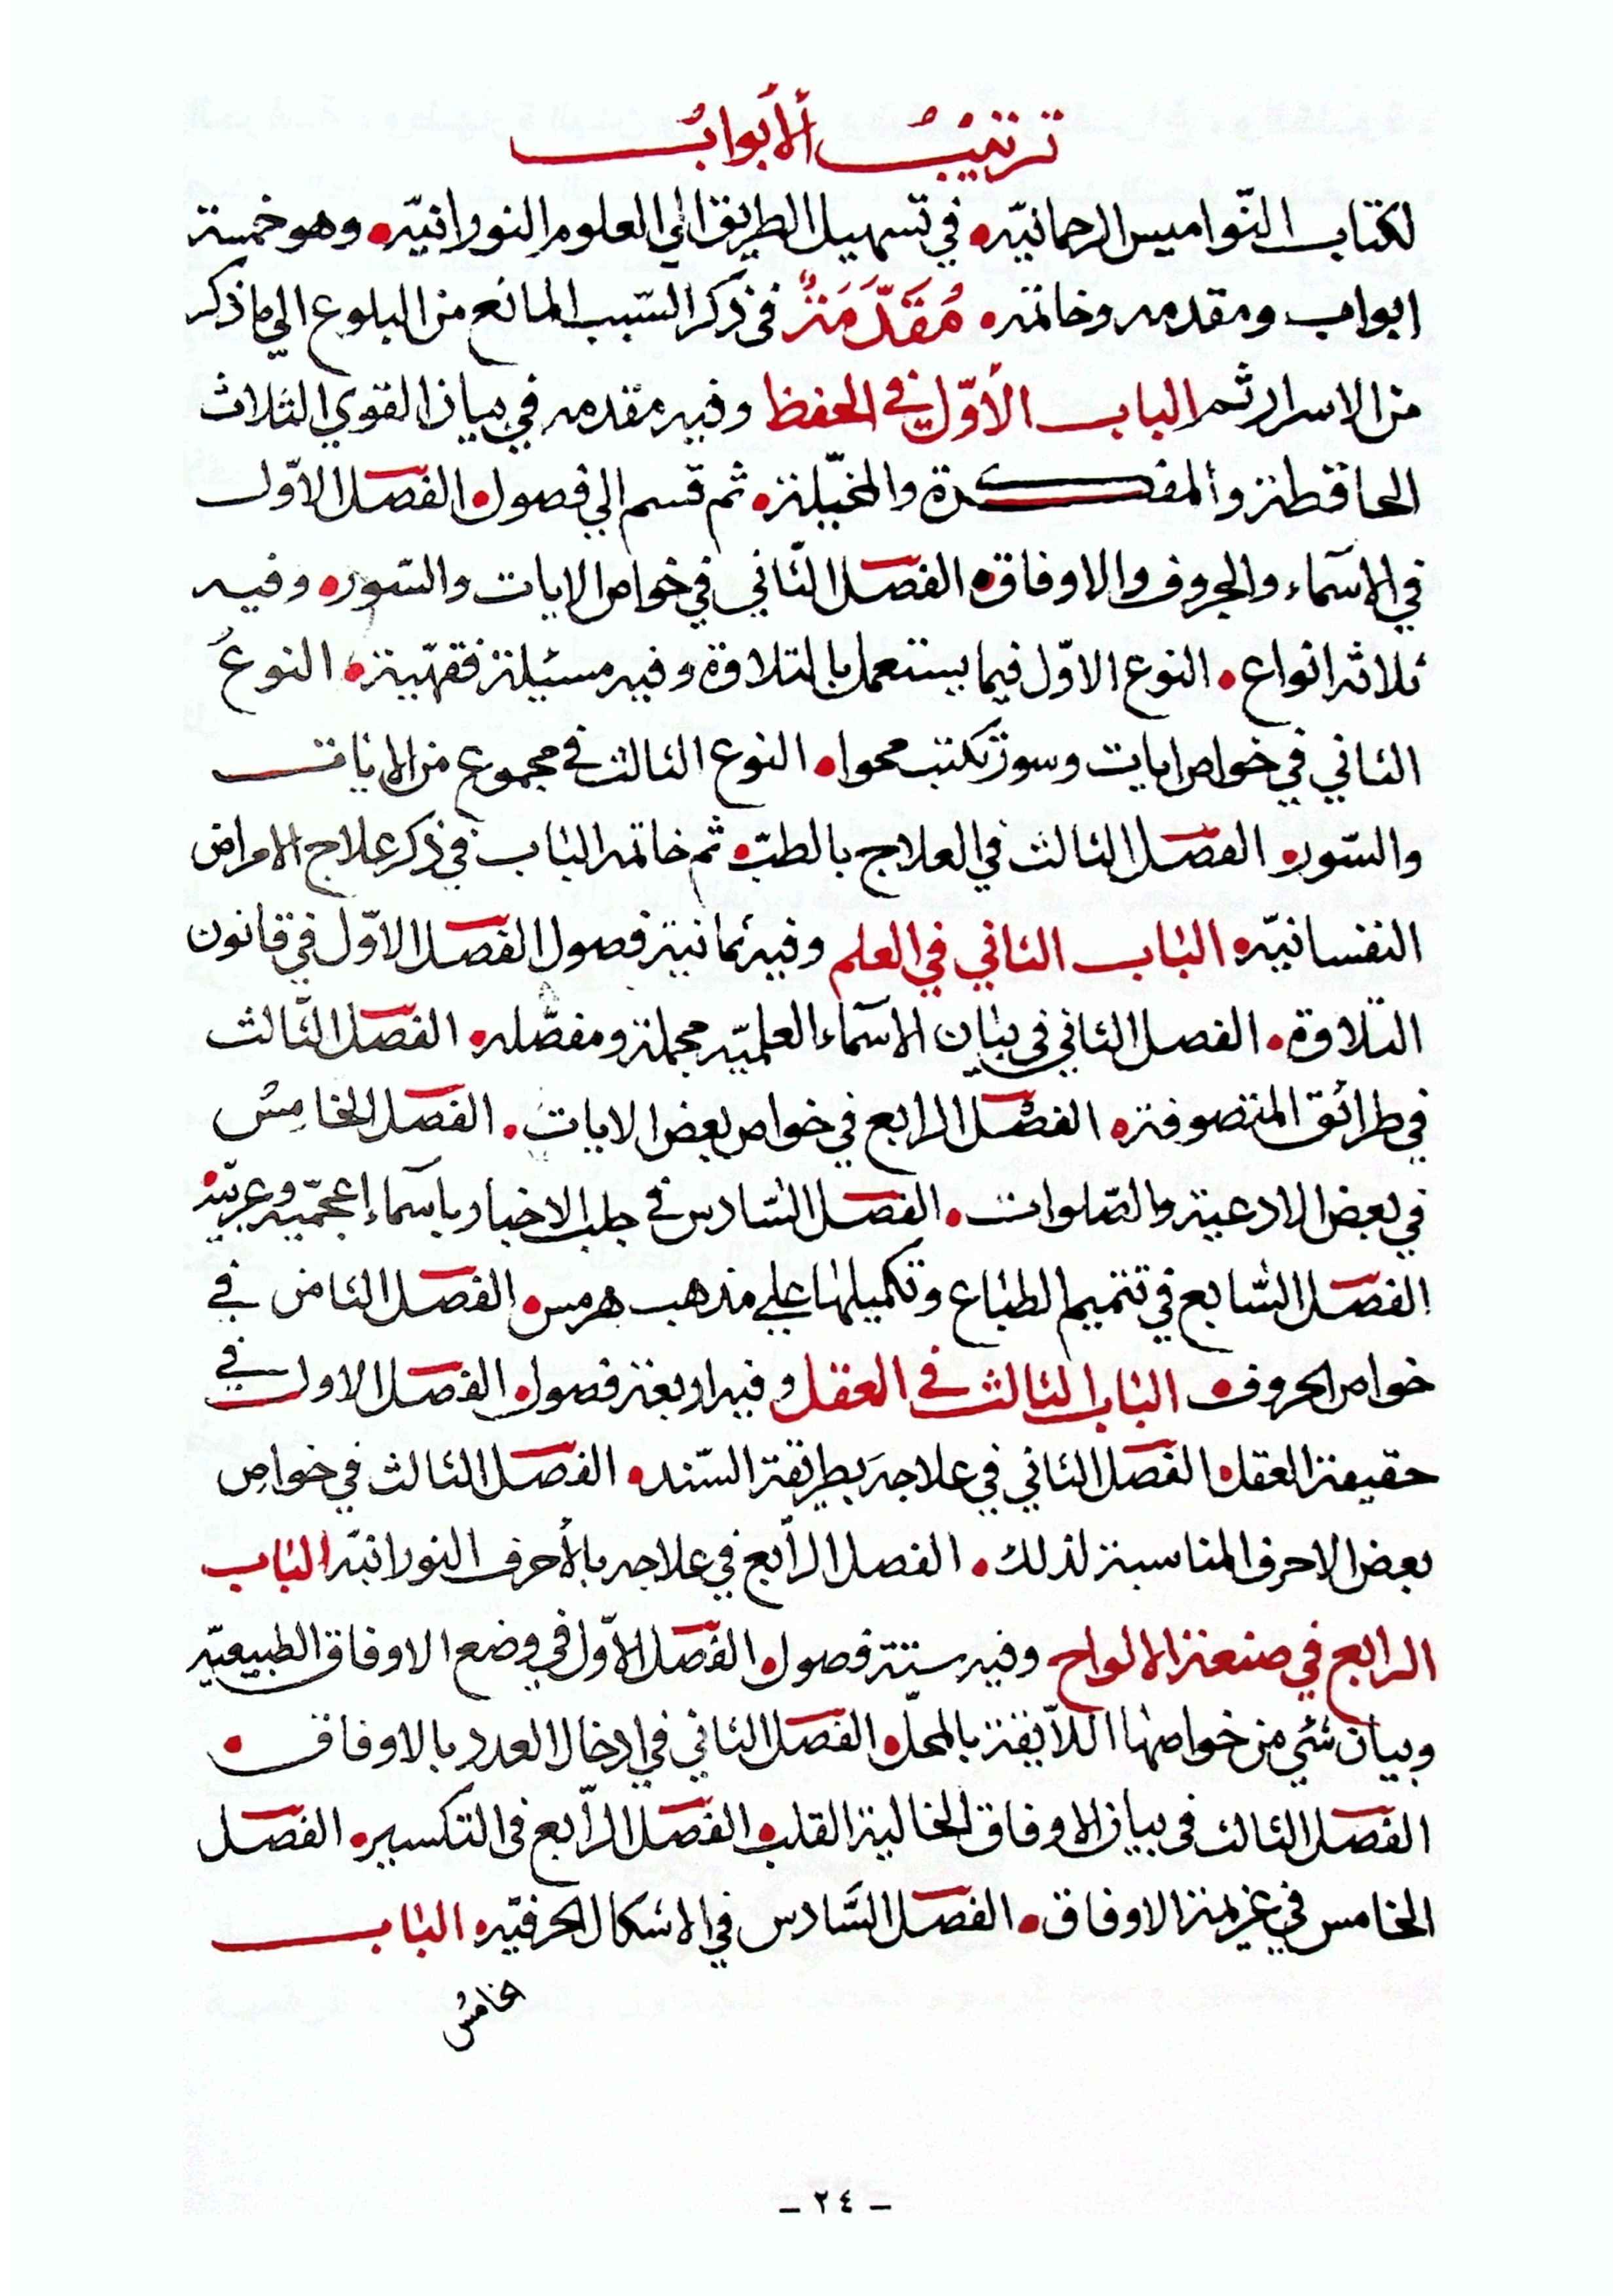 ترتيب الأبواب
لكتاب النّواميس الرحمانيّه • في تسهيل الطريق الي العلوم النورانيّه • وهو خمسة
ابواب ومقدمه وخاتمه • مُقَدَّمَةٌ في ذكر السّبب المانع من البلوع الي ما ذكر
من الاسرار ثم الباب الأوّل في الحفظ وفيه مقدمه في بيان القوي الثلاث
الحافظة والمفكرة والمخيّلة • ثم قسم الي فصول • الفصل الاوّل
في الاسماء والحروف والاوفاق • الفصل الثّاني في خواص الايات والسّور • وفيه
ثلاثه انواع • النوع الاوّل فيما يستعمل بالتلاوة وفيه مسئيلة فقهّية • النوعُ
الثاني في خواص ايات وسور تكتب محوا • النوع الثالث في مجموع من الايات
والسّور • الفصل الثالث في العلاج بالطبّ • ثم خاتمه الباب في ذكر علاج الامراض
النفسانيّه • الباب الثاني في العلم وفيه ثمانية فصول الفصل الاوّل في قانون
التلاوة • الفصل الثاني في بيان الاسماء العلميّه مجملة ومفصّله • الفصل الثّالث
في طرائق المتصوفة • الفصل الرابع في خواص بعض الايات • الفصل الخامسُ
في بعض الادعية والصّلوات • الفصل السّادس في جلب الاخبار باسماء إعجميّه وعربيّه •
الفصل السّابع في تتميم الطباع وتكميلها علي مذهب هرمس • الفصل الثامن في
خواص الحروف • الباب الثالث في العقل وفيه اربعة فصول • الفصل الاول في
حقيقة العقل • الفصل الثاني في علاجه بطريقة السّند • الفصل الثالث في خواص
بعض الاحرف المناسبة لذلك • الفصل الرّابع في علاجه بالأحرف النورانيّه الباب
الرابع في صنعة الالواح وفيه ستة فصول • الفصل الاوّل في وضع الاوفاق الطبيعيّه
وبيان شئي من خواصها اللآيقة بالمحلّ • الفصل الثاني في ادخال العدد بالاوفاق •
الفصل الثالث في بيان الاوفاق الخالية القلب • الفصل الرّابع في التكسير • الفصل
الخامس في عزيمة الاوفاق • الفصل السّادس في الاشكال الحرفيّه • الباب
خامسُ
- ٢٤ -